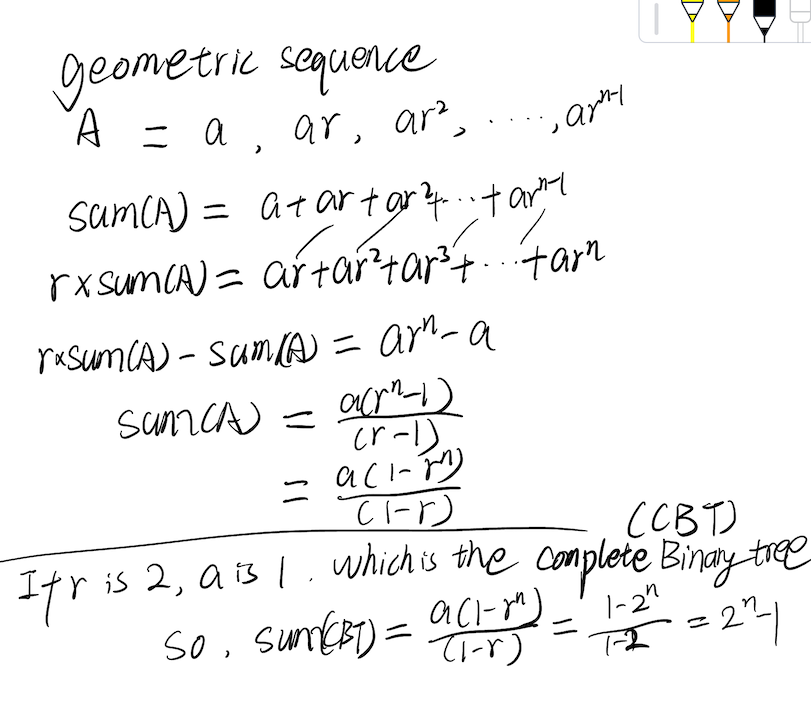 geometric sequence
A = a, ar, ar², ····, arⁿ⁻¹
sum(A) = a + ar + ar² + ··· + arⁿ⁻¹
r×sum(A) = ar + ar² + ar³ + ··· + arⁿ
r×sum(A) - sum(A) = arⁿ - a
sum(A) = a(rⁿ-1)/(r-1)
= a(1-rⁿ)/(1-r)
(CBT)
If r is 2, a is 1. which is the complete Binary tree
so, sum(CBT) = a(1-rⁿ)/(1-r) = 1-2ⁿ/1-2 = 2ⁿ-1